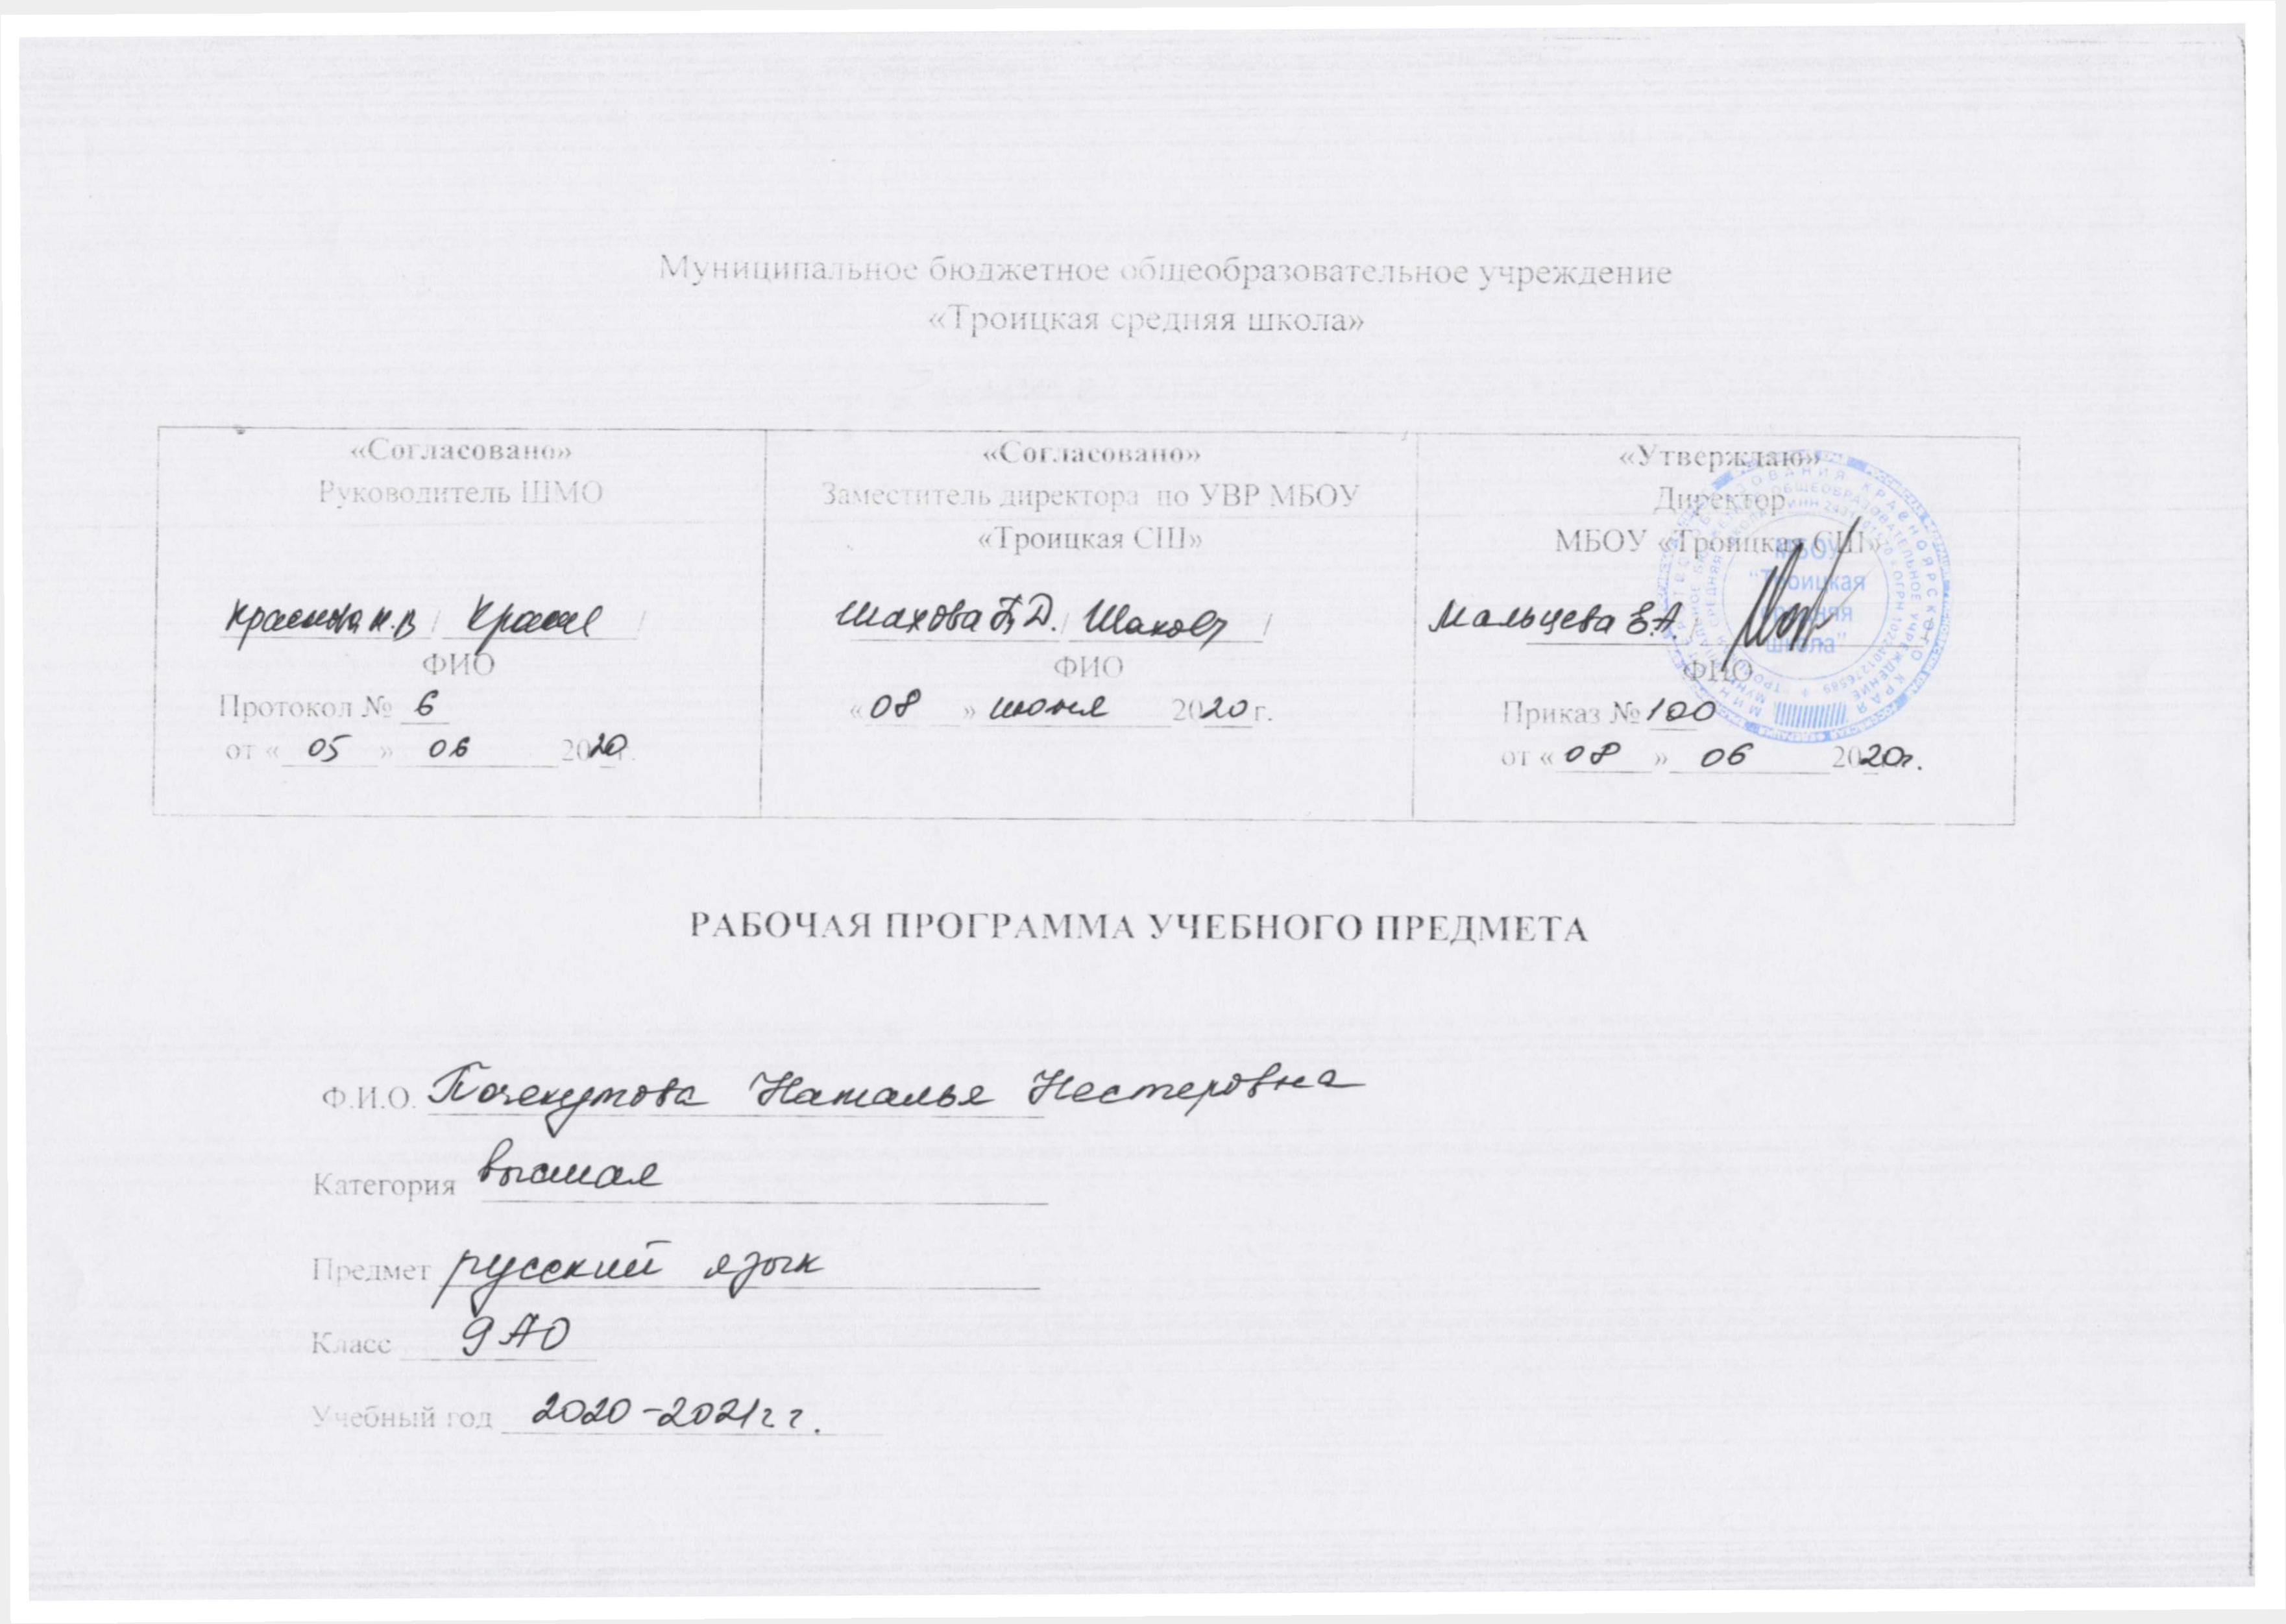 Муниципальное бюджетное общеобразовательное учреждение
«Троицкая средняя школа»
«Согласовано»
Руководитель ШМО
Краснова Н.В /
ФИО
Протокол № 6
от « 05 » 06 2020г.
«Согласовано»
Заместитель директора по УВР МБОУ
«Троицкая СШ»
Шахова Т.Д. /
ФИО
« 08 » июня 2020 г.
«Утверждаю»
Директор
МБОУ «Троицкая СШ»
Мальцева Е.А.
ФИО
Приказ № 100
от « 08 » 06 2020г.
МБОУ
"Троицкая
средняя
школа"
РАБОЧАЯ ПРОГРАММА УЧЕБНОГО ПРЕДМЕТА
Ф.И.О. Почекутова Наталья Нестеровна
Категория высшая
Предмет русский язык
Класс 9 АО
Учебный год 2020-2021г г.